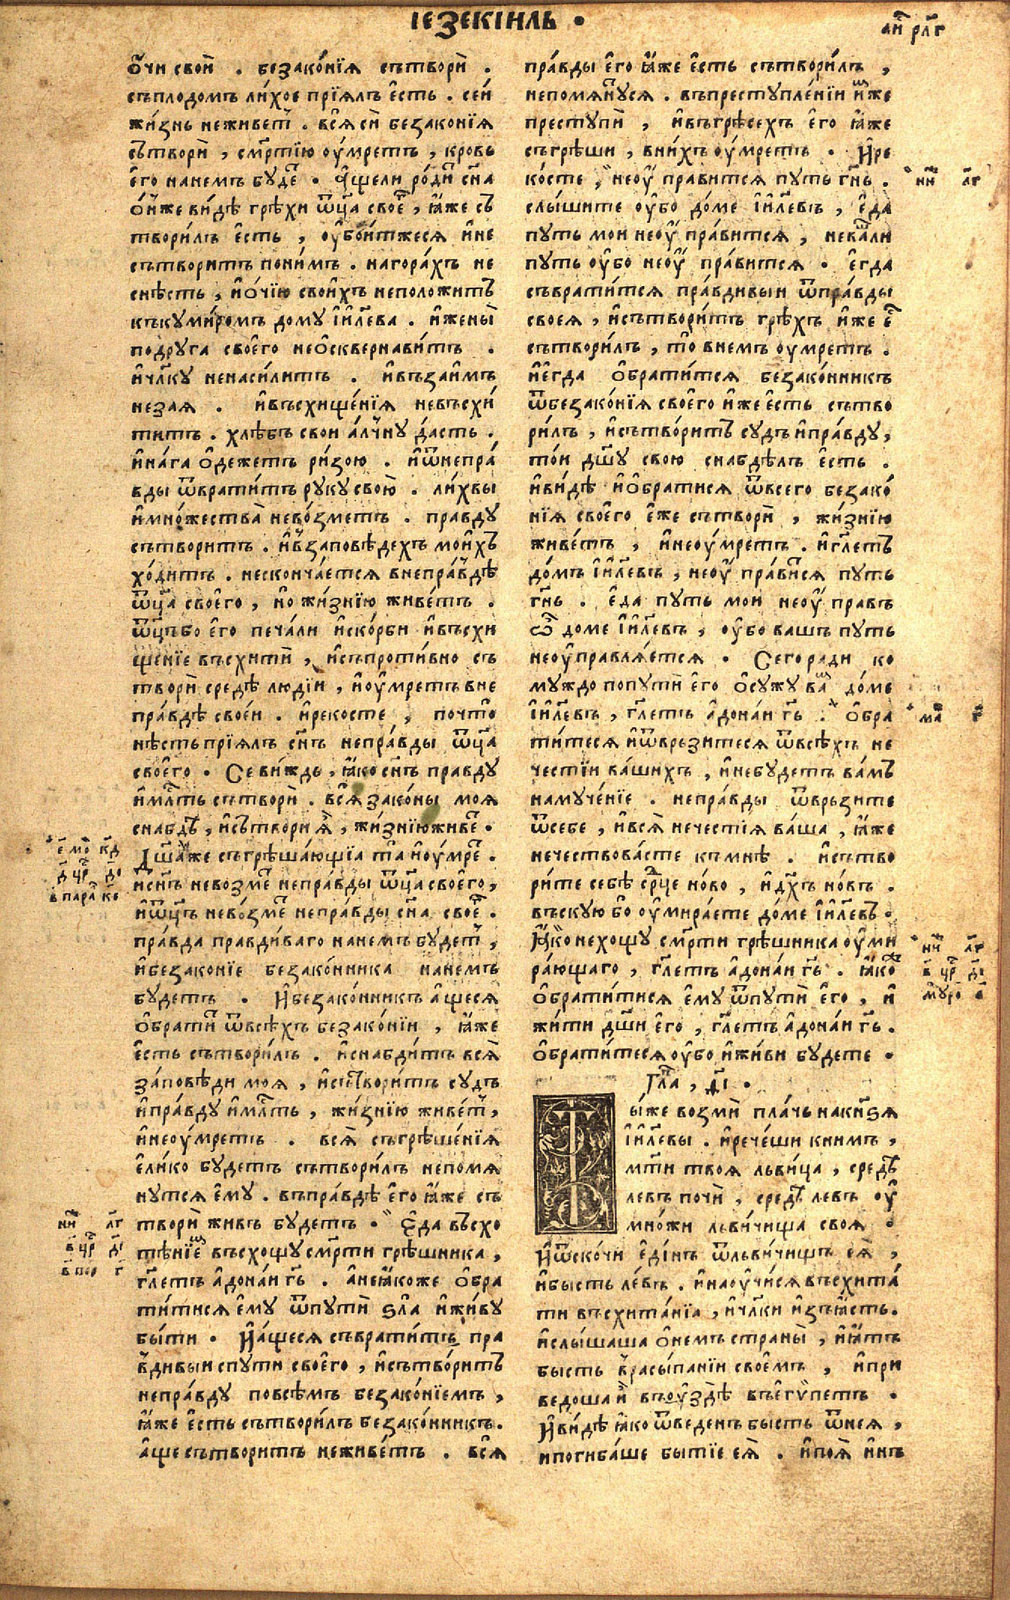 ІЕЗЕКІИЛЬ .
о҆́чи свои̑ . беззако́нїѧ сътвори̑ .
съплодомъ ли́хое прїѧлъ є҆сть . сей
жи́знь неживетⷮ . всѧ̑ сѝ беззаконїѧ
сътвори̑ , смр҃тїю оу҆́мретъ , кровь
є҆го нанемъ бу́деⷮ . А҆́щели роди́тⷮ сн҃а
о҆́нже ви́дѣ грѣхи ѿц҃а своеⷢ҇ , ꙗ҆̀же съ
творилъ є҆сть , оу҆бои́тжесѧ и҆не
сътворитъ пони́мъ . нагора́хъ не
снѣсть , и҆о́чїю свои́хъ неположитъ
къкуми́ромъ дому і҆и҃лева . и҆жены̀
подруга своего̀ неѻ҆скверна́витъ .
и҆чл҃ку ненаси́литъ . и҆въза́имъ
незаѧ . и҆въсхище́нїѧ невъсхи́
титъ . хлѣбъ свои а҆́лчну да́сть .
и҆на́га ѻ҆дежетъ ри́зою . и҆ѿнепра́
вды ѿврати́тъ руку свою̀ . ли́хвы
и҆мно́жества̀ нево́зметъ . правду
сътворитъ . и҆в̾заповѣдехъ мои́хъ
хо́дитъ . несконча́етсѧ внепра́вдѣ
ѿц҃а своего , но жи́знїю живе́тъ .
ѿц҃ъбо є҆го печа́ли и҆ско́рби и҆въсхи
щенїе въсхити̑ , и҆съпроти́вно съ
твори̑ средѣ людїи , и҆оу҆мретъ вне
пра́вдѣ свое́и . и҆рекосте , почто̀
нѣсть прїѧлъ сн҃ъ непра́вды ѿц҃а
своего . Се ви́ждь , ꙗ҆́ко сн҃ъ правду
и҆мл҃ть сътвори̑ . всѧ̑ зако́ны моѧ
снабдѣ , и҆сътвори ѧ҆̀ , жи́знїюживеⷮ .
Дш҃а́же съгрѣша́ющїа та̀ и҆оу҆мреⷮ .
и҆сн҃ъ невозмеⷮ непра́вды ѿц҃а своего̀ ,
и҆ѿц҃ъ нево́змеⷮ непра́вды сн҃а своеⷢ҇ .
пра́вда правди́ваго нанемъ будетⷮ ,
и҆беззаконїе беззако́нника нанемъ
будетъ . И҆беззако́нникъ а҆́щесѧ
ѻ҆брати́тⷮ ѿвсѣхъ беззако́нїи , ꙗ҆̀же
є҆сть сътвори́лъ . и҆снабди́тъ всѧ̑
за́повѣди моѧ , и҆сътвори́тъ су́дъ
и҆пра́вду и҆мл҃ть , жи́знїю живе́тⷮ ,
и҆неоу҆мретъ . всѧ̑ съгрѣше́нїѧ
є҆ли́ко будетъ сътвори́лъ непомѧ
нутсѧ є҆му . въпра́вдѣ є҆го̀ ꙗ҆̀же съ
твори̑ живъ будетъ . Є҆да въсхо
тѣнїеⷨ въсхощу см҃рти грѣшника ,
гл҃етъ а҆дона́и гь҃ . а҆неꙗ҆коже ѻ҆бра
ти́тисѧ є҆му ѿпути̑ ѕла̀ и҆жи́ву
бы́ти . И҆а҆́щесѧ съврати́тъ пра
вдивыи спути̑ своего̀ , и҆сътво́ритъ
непра́вду повсѣмъ беззако́нїемъ ,
ꙗ҆̀же є҆сть сътвори́лъ беззако́нникъ .
а҆́ще сътворитъ неживе́тъ . всѧ̑
пра́вды є҆го̀ ꙗ҆̀же є҆сть сътвори́лъ ,
непомѧну́сѧ . въпреступле́нїи и҆́же
преступѝ , и҆въгрѣсехъ є҆го̀ ꙗ҆̀же
съгрѣши , вни́хъ оу҆мретъ . И҆ре
косте , неоу҆ пра́витсѧ путь гн҃ь .
слы́шите оу҆́бо до́ме і҆и҃левъ , є҆да
путь мои неоу҆ пра́витсѧ , нева́шли
путь оу҆́бо неоу҆ пра́витсѧ . є҆гда
съврати́тсѧ пра́вдивыи ѿпра́вды
своеѧ , и҆сътвори́тъ грѣхъ и҆́же єⷭ҇
сътвори́лъ , то̀ внемъ оу҆мретъ .
и҆є҆гда ѻ҆брати́тсѧ беззако́нникъ
ѿбеззако́нїѧ своего̀ и҆́же є҆сть сътво
ри́лъ , и҆сътво́ритъ судъ и҆пра́вду ,
то́и дш҃у свою снабдѣлъ є҆сть .
и҆ви́дѣ и҆ѻ҆братисѧ ѿвсего беззако́
нїѧ своего̀ є҆́же сътвори̑ , жи́знїю
живе́тъ , и҆неоу҆́мретъ . и҆гл҃етъ
до́мъ і҆и҃левъ , неоу҆ пра́витсѧ путь
гн҃ь . є҆да путь мои неоу҆ правъ
ѽ доме і҆и҃левъ , оу҆́бо вашъ путь
неоу҆правлѧ́етсѧ . Сего ради ко
муждо попути̑ є҆го ѻ҆сужу ваⷭ҇ до́ме
і҆и҃левъ , гл҃етъ а҆дона́и гь҃ . ѻ҆бра
ти́тесѧ и҆ѿврьзитесѧ ѿвсѣхъ не
че́стїи ва́шихъ , и҆небудетъ ва́мъ
намуче́нїе . непра́вды ѿврьзите
ѿсебе , и҆всѧ̀ нечестїѧ ва́ша , ꙗ҆̀же
нечествова́сте къмнѣ . и҆сътво
ри́те себѣ ср҃це но́во , и҆дх҃ъ но́въ .
въскую бо оу҆мира́ете до́ме і҆и҃левъ .
Ꙗ҆́ко нехощу смр҃ти грѣшника оу҆ми
ра́ющаго , гл҃етъ а҆дона́и гь҃ . ꙗ҆ко
ѻ҆брати́тисѧ є҆му ѿпути̑ є҆го , и҆
жи́ти дш҃и є҆го , гл҃етъ а҆дона́и гь҃ .
ѻ҆брати́тесѧ оу҆́бо и҆жи́ви бу́дете .
Глⷡ҇а , д҃і .
Ты́же возмѝ пла́чь накн҃ѕѧ
і҆и҃левы . и҆рече́ши книмъ ,
мт҃и твоѧ льви́ца , средѣ
левъ почѝ , средѣ левъ оу҆
мно́жи льви́чища своѧ .
И҆ѿскочи є҆ди́нъ ѿльви́чищъ еѧ̀ ,
и҆бысть ле́въ . и҆наоу҆чи́сѧ въсхита́
ти въсхита́нїа , и҆чл҃ки и҆зъꙗ҆сть .
и҆слы́шаша ѻ҆немъ страны̀ , и҆ꙗ҆тъ
бысть в̾расы́панїи своемъ , и҆при
ведошаѝ въоу҆здѣ въе҆гѵ́петъ .
И҆ви́дѣ ꙗ҆́ко ѿведенъ бысть ѿнеѧ ,
и҆погиба́ше бытїе еѧ̀ . и҆поѧ̀ и҆нъ